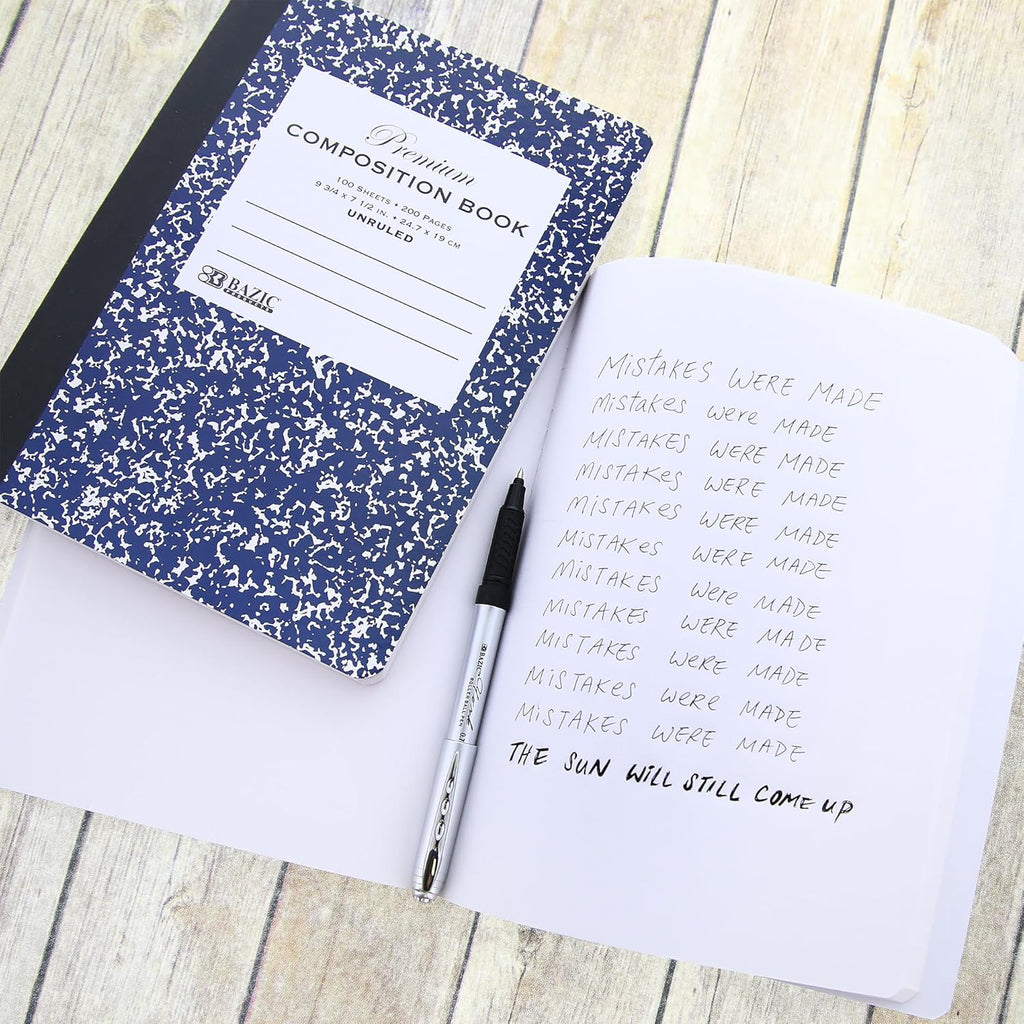 Premium
COMPOSITION BOOK
100 SHEETS • 200 PAGES
9 3/4 x 7 1/2 IN. • 24.7 x 19 CM
UNRULED
BAZIC
PRODUCTS
MistAKES WERE MADE
Mistakes were MADE
MISTAKES WERE MADE
MISTAKES WERE MADE
MISTAKES WERE MADE
MISTAKes WERE MADE
MISTAKES Were MADE
MISTAKES WERE MADE
MISTAKES WeRE MADE
MISTAKes were MADE
MiSTAKES WERE MADE
THE SUN WiLL STILL COME UP
BAZIC
ROLLER BALL PEN 0.7